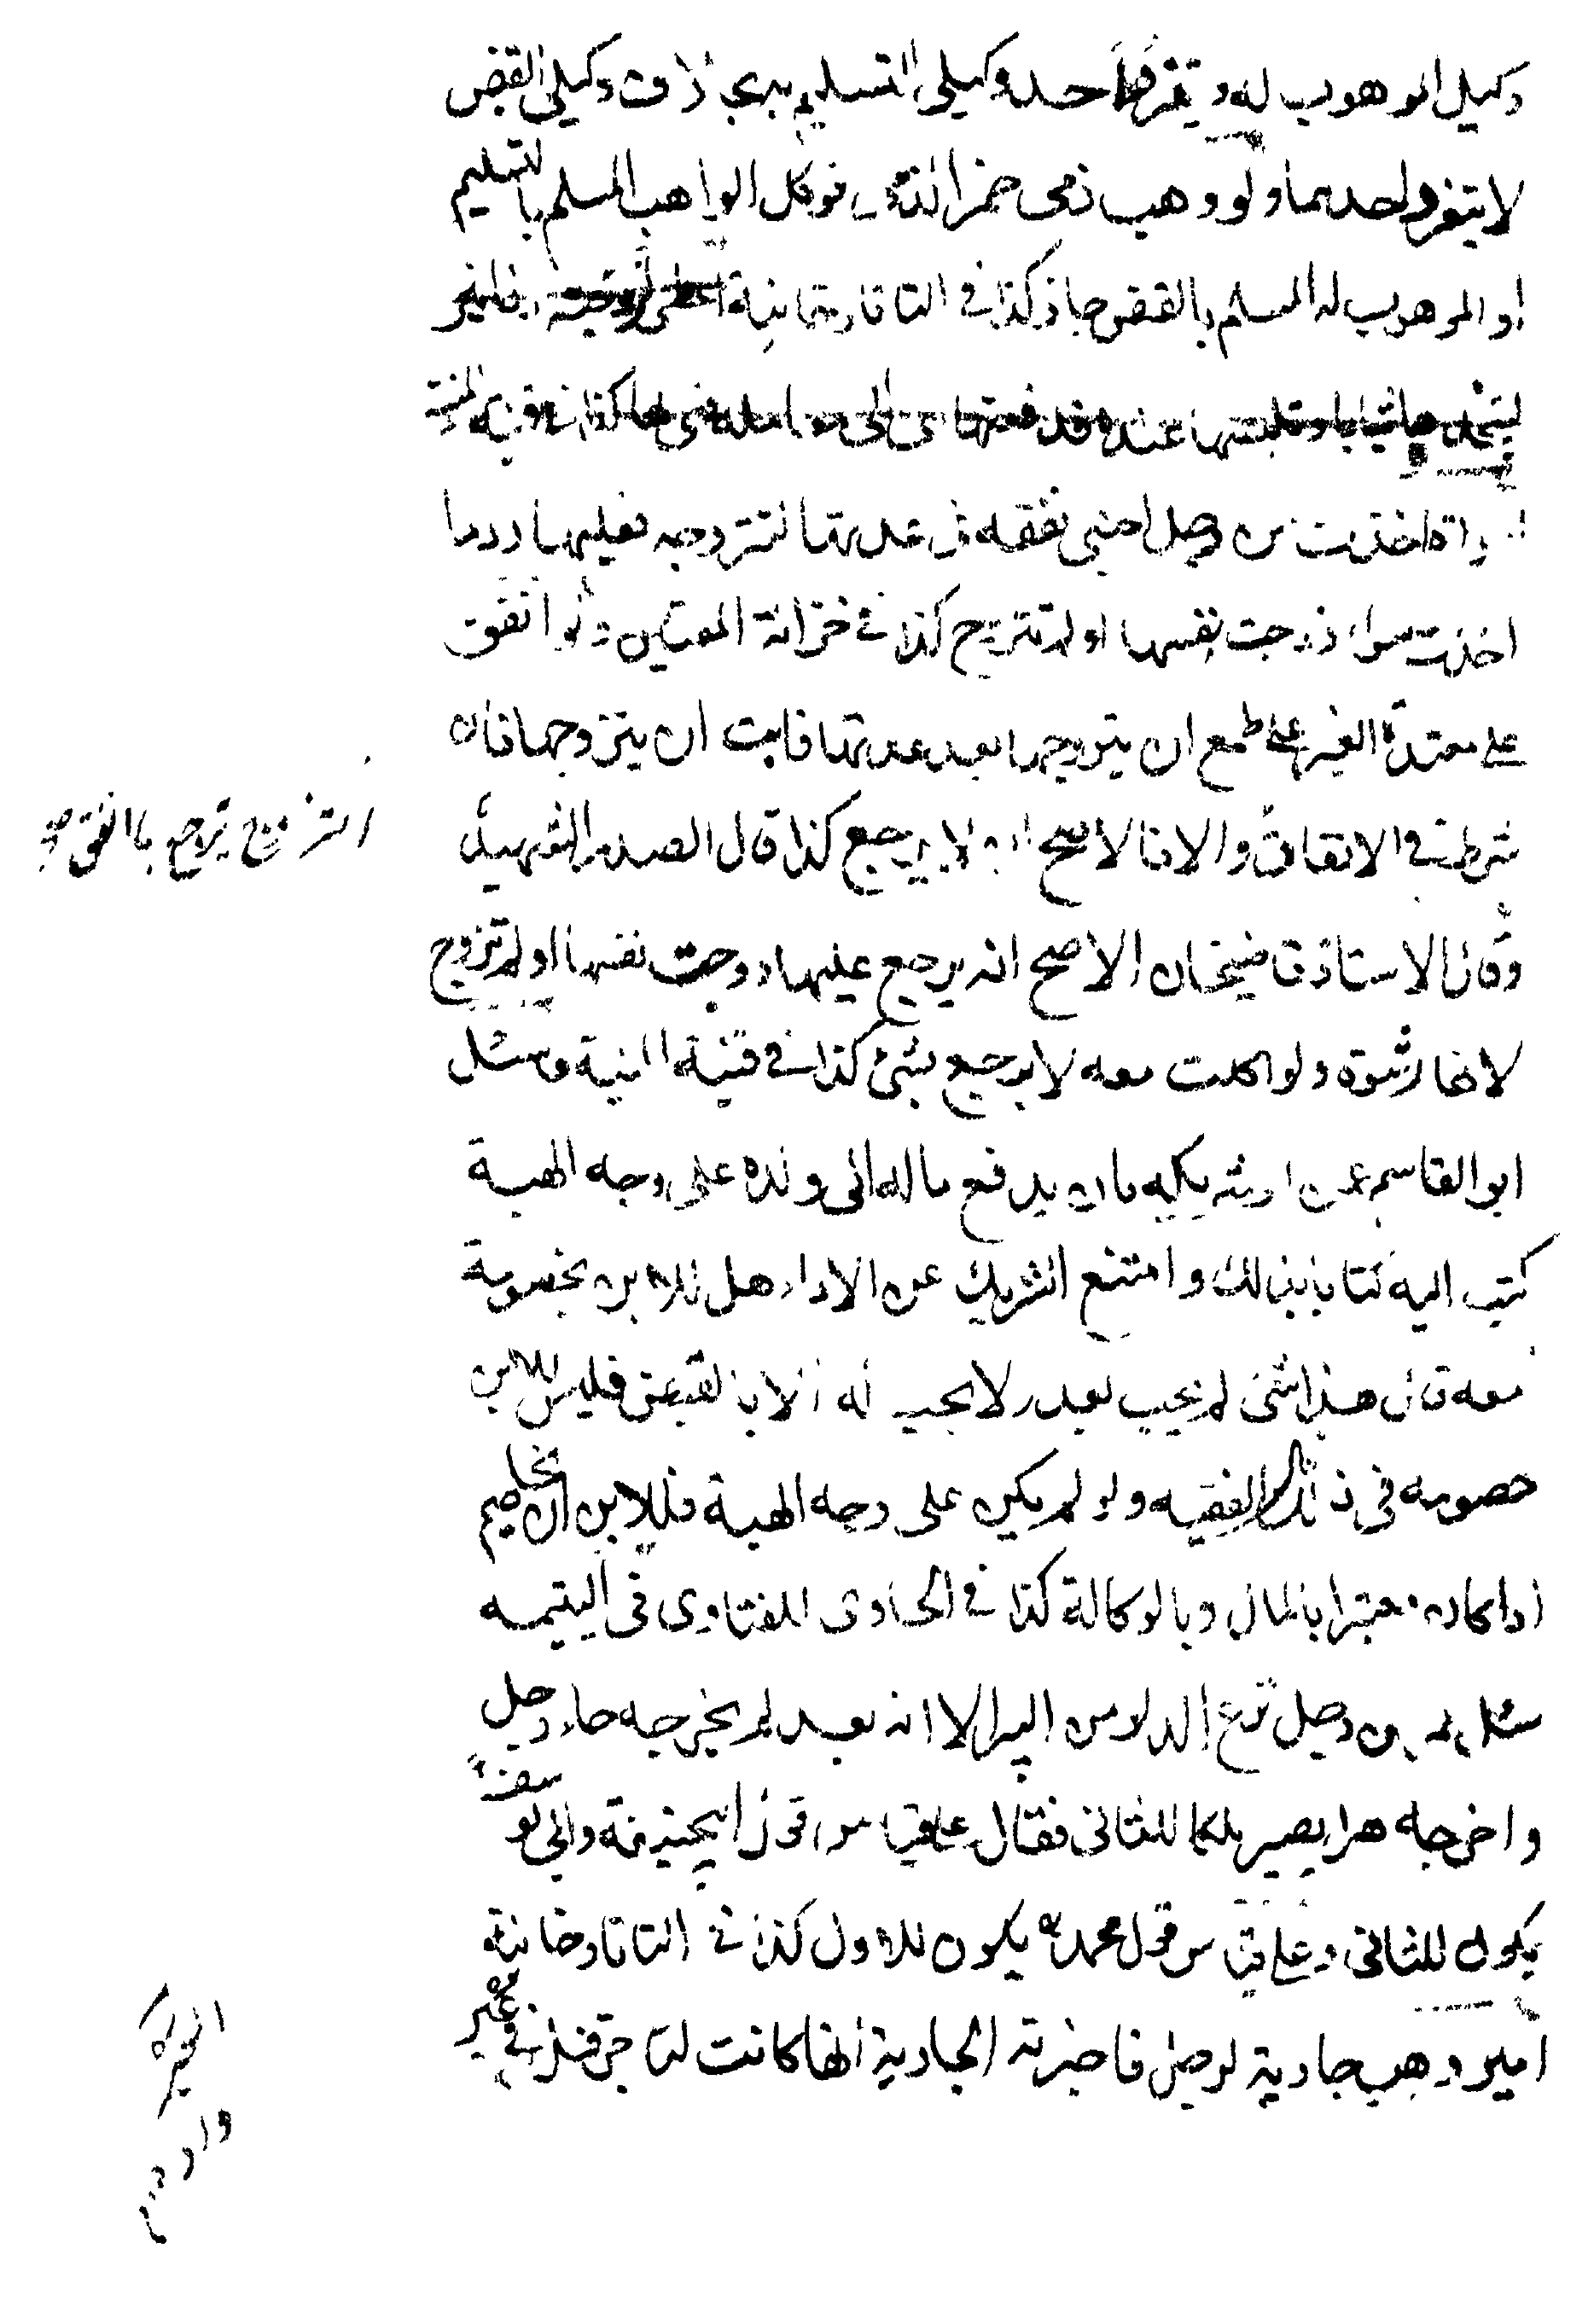 وكيل الموهوب له ويتفرد احد وكيلي التسليم بدى خلاف وكيلي القبض
لا يتفرد احدهما ولو وهب ذمى خمرا لذمى فوكل الواهب المسلم بالتسليم
او الموهوب له المسلم بالقبض جاز كذا في التاتارخانية اعطى لزوجته دنانير
ليتخذ بها ثيابا وتلبسها عنده فدفعتها هى الى معاملة فهى لها كذا في قنية المنية
امراة اخذت من رجل اجنبى نفقة في عدتها لتتزوجه فعليها رد ما
اخذت سواء زوجت نفسها او لم تتزوج كذا في خزانة المفتين ولو انفق
على معتدة الغير على طمع ان يتزوجها بعد عدتها فابت ان يتزوجها فان
شرط في الانفاق والا فالاصح انه لا يرجع كذا قال الصدر الشهيد
وقال الاستاذ قاضيخان الاصح انه يرجع عليها زوجت نفسها او لم تزوج
لانها رشوة ولو اكلت معه لا يرجع بشئ كذا في قنية المنية وسئل
ابو القاسم عمن امر شريكه بان يدفع ماله الى ولده على وجه الهبة
كتب اليه كتابا بذلك وامتنع الشريك عن الاداء هل للابن بخصومة
معه قال هذا شئ لم يجب بعد ولا يجب له الا بالقبض فليس للابن
خصومه في ذلك الفقيه ولو لم يكن على وجه الهبة فللابن ان يخاصم
اذا كان مقرا بالمال وبالوكالة كذا في الحاوى للفتاوى في اليتيمه
سئل عن رجل نزع الدلو من البير الا انه بعد لم يخرجه جاء رجل
واخرجه هل يصير ملكا للثانى فقال على قياس قول ابيحنيفة وابي يوسف
يكون للثانى وعلى قياس قول محمد يكون للاول كذا في التاتارخانية
امير وهب جارية لرجل فاخبرته الجارية انها كانت لتاجر قتل في عير